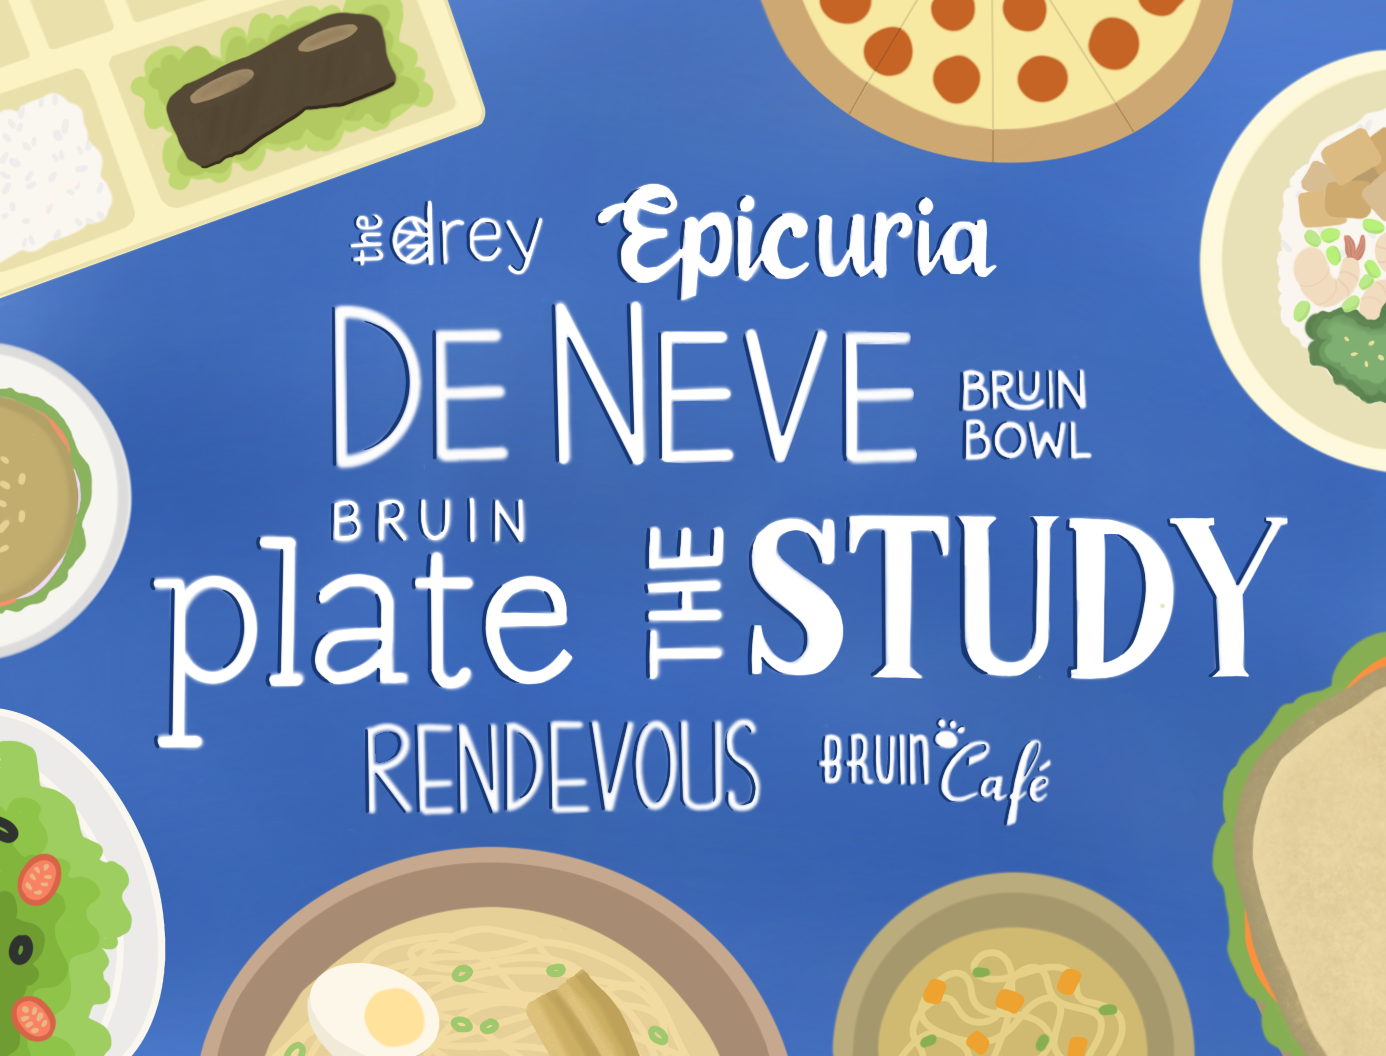 the drey Epicuria
DE NEVE BRUIN
BOWL
BRUIN
plate THE STUDY
RENDEVOUS BRUIN Café